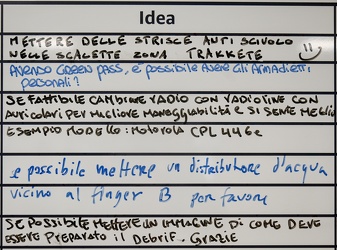 Idea
METTERE DELLE STRISCE ANTI SCIVOLO
NELLE SCALETTE ZONA TRAKKETE
AVENDO GREEN PASS, è possibile AVERE Gli ARMADIETTI
personali?
SE FATTIBILE CAMBIARE RADIO CON RADIOLINE CON
AURICOLARI PER MIGLIORE MANEGGIABILITÀ E SI SENTE MEGLIO
ESEMPIO MODELLO: MOTOROLA CPL 446e
è possibile mettere un distributore d'acqua
vicino al finger B per favore
SE POSSIBILE METTERE UN IMMAGINE DI COME DEVE
ESSERE PREPARATO il DEBRIF. GRAZIE